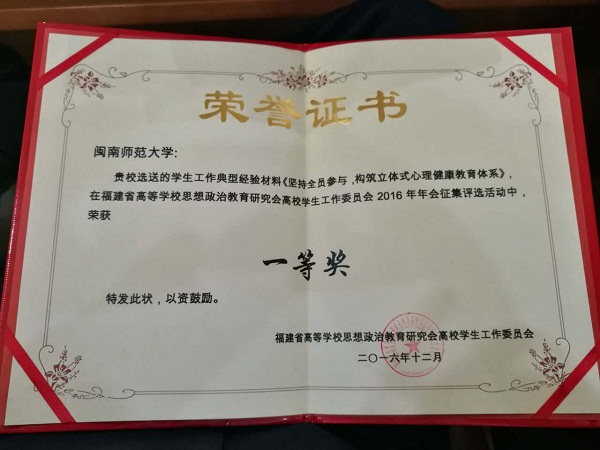 荣誉证书
闽南师范大学：
贵校选送的学生工作典型经验材料《坚持全员参与，构筑立体式心理健康教育体系》，
在福建省高等学校思想政治教育研究会高校学生工作委员会2016年年会征集评选活动中，
荣获
一等奖
特发此状，以资鼓励。
福建省高等学校思想政治教育研究会高校学生工作委员会
二〇一六年十二月